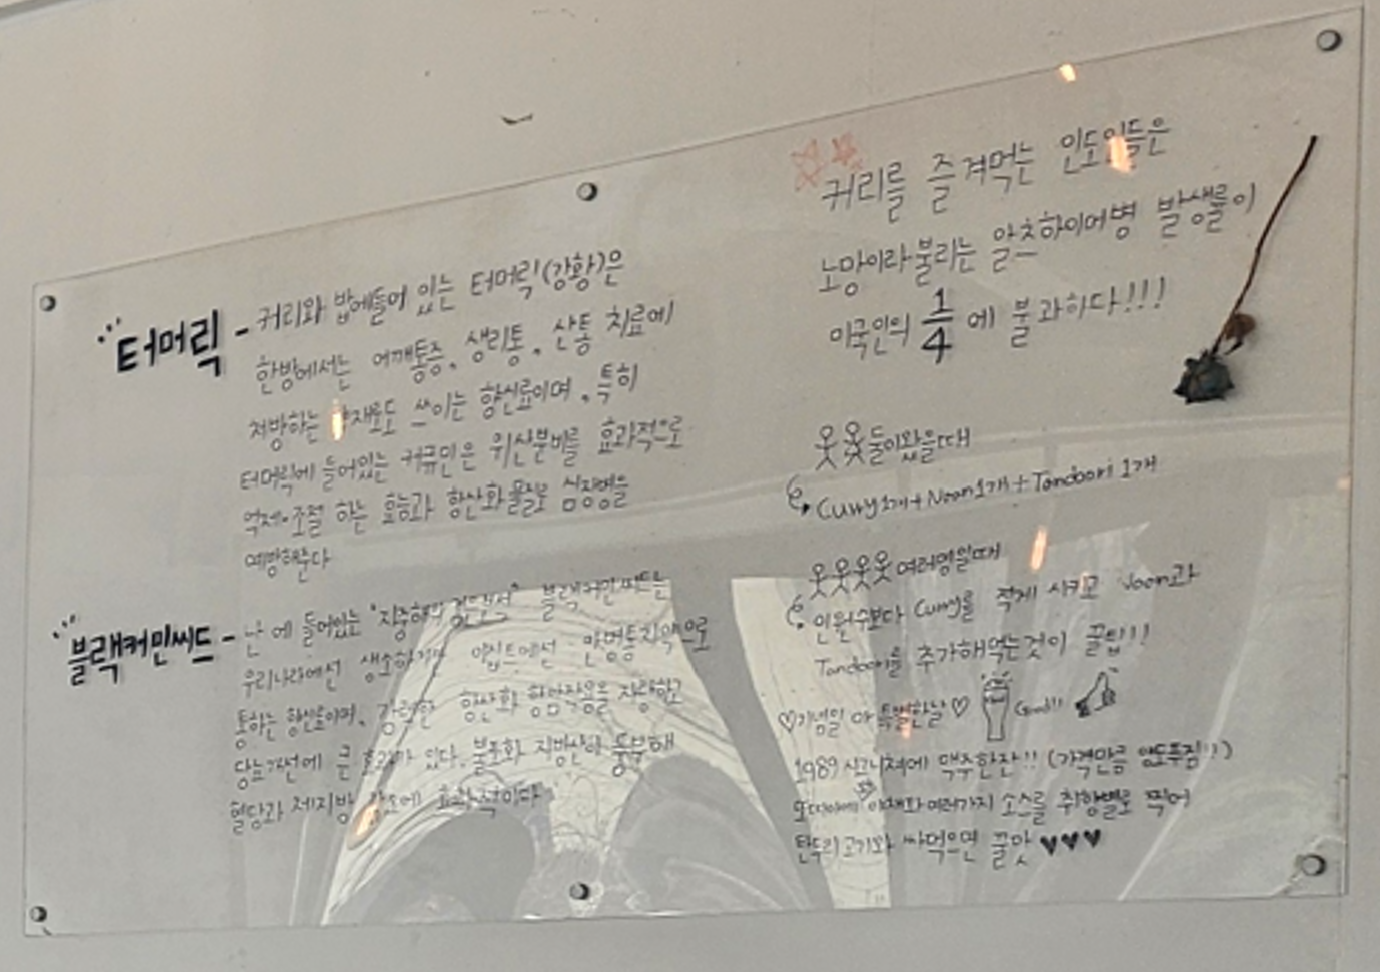 터머릭 - 커리와 밥에들어 있는 터머릭(강황)은
한방에서는 어깨통증, 생리통, 산통 치료에
처방하는 약재로도 쓰이는 향신료이며, 특히
터머릭에 들어있는 커큐민은 위산분비를 효과적으로
억제·조절 하는 효능과 항산화물질로 심장병을
예방해준다
블랙커민씨드 - 난 에 들어있는 "지중해의 검은색" 블랙커민씨드는
우리나라에선 생소하지만 이집트에선 만병통치약으로
통하는 향신료이며, 강력한 항산화 항암작용을 자랑하고
당뇨개선에 큰 효과가 있다. 불포화 지방산이 풍부해
혈당과 체지방 감소에 효과적이다
커리를 즐겨먹는 인도인들은
노망이라 불리는 알츠하이머병 발생률이
미국인의 1/4 에 불과하다!!!
둘이왔을때
Curry1개+Naan1개+Tandoori 1개
여러명일때
인원수보다 Curry를 적게 시키고 Naan과
Tandoori를 추가해먹는것이 꿀팁!!
♡기념일 아 특별한날♡ Good!!
1989 시그니쳐에 맥주한잔!! (가격만큼 양도푸짐!!)
또띠아에 야채와 여러가지 소스를 취향별로 찍어
탄두리고기와 싸먹으면 꿀맛 ♥♥♥